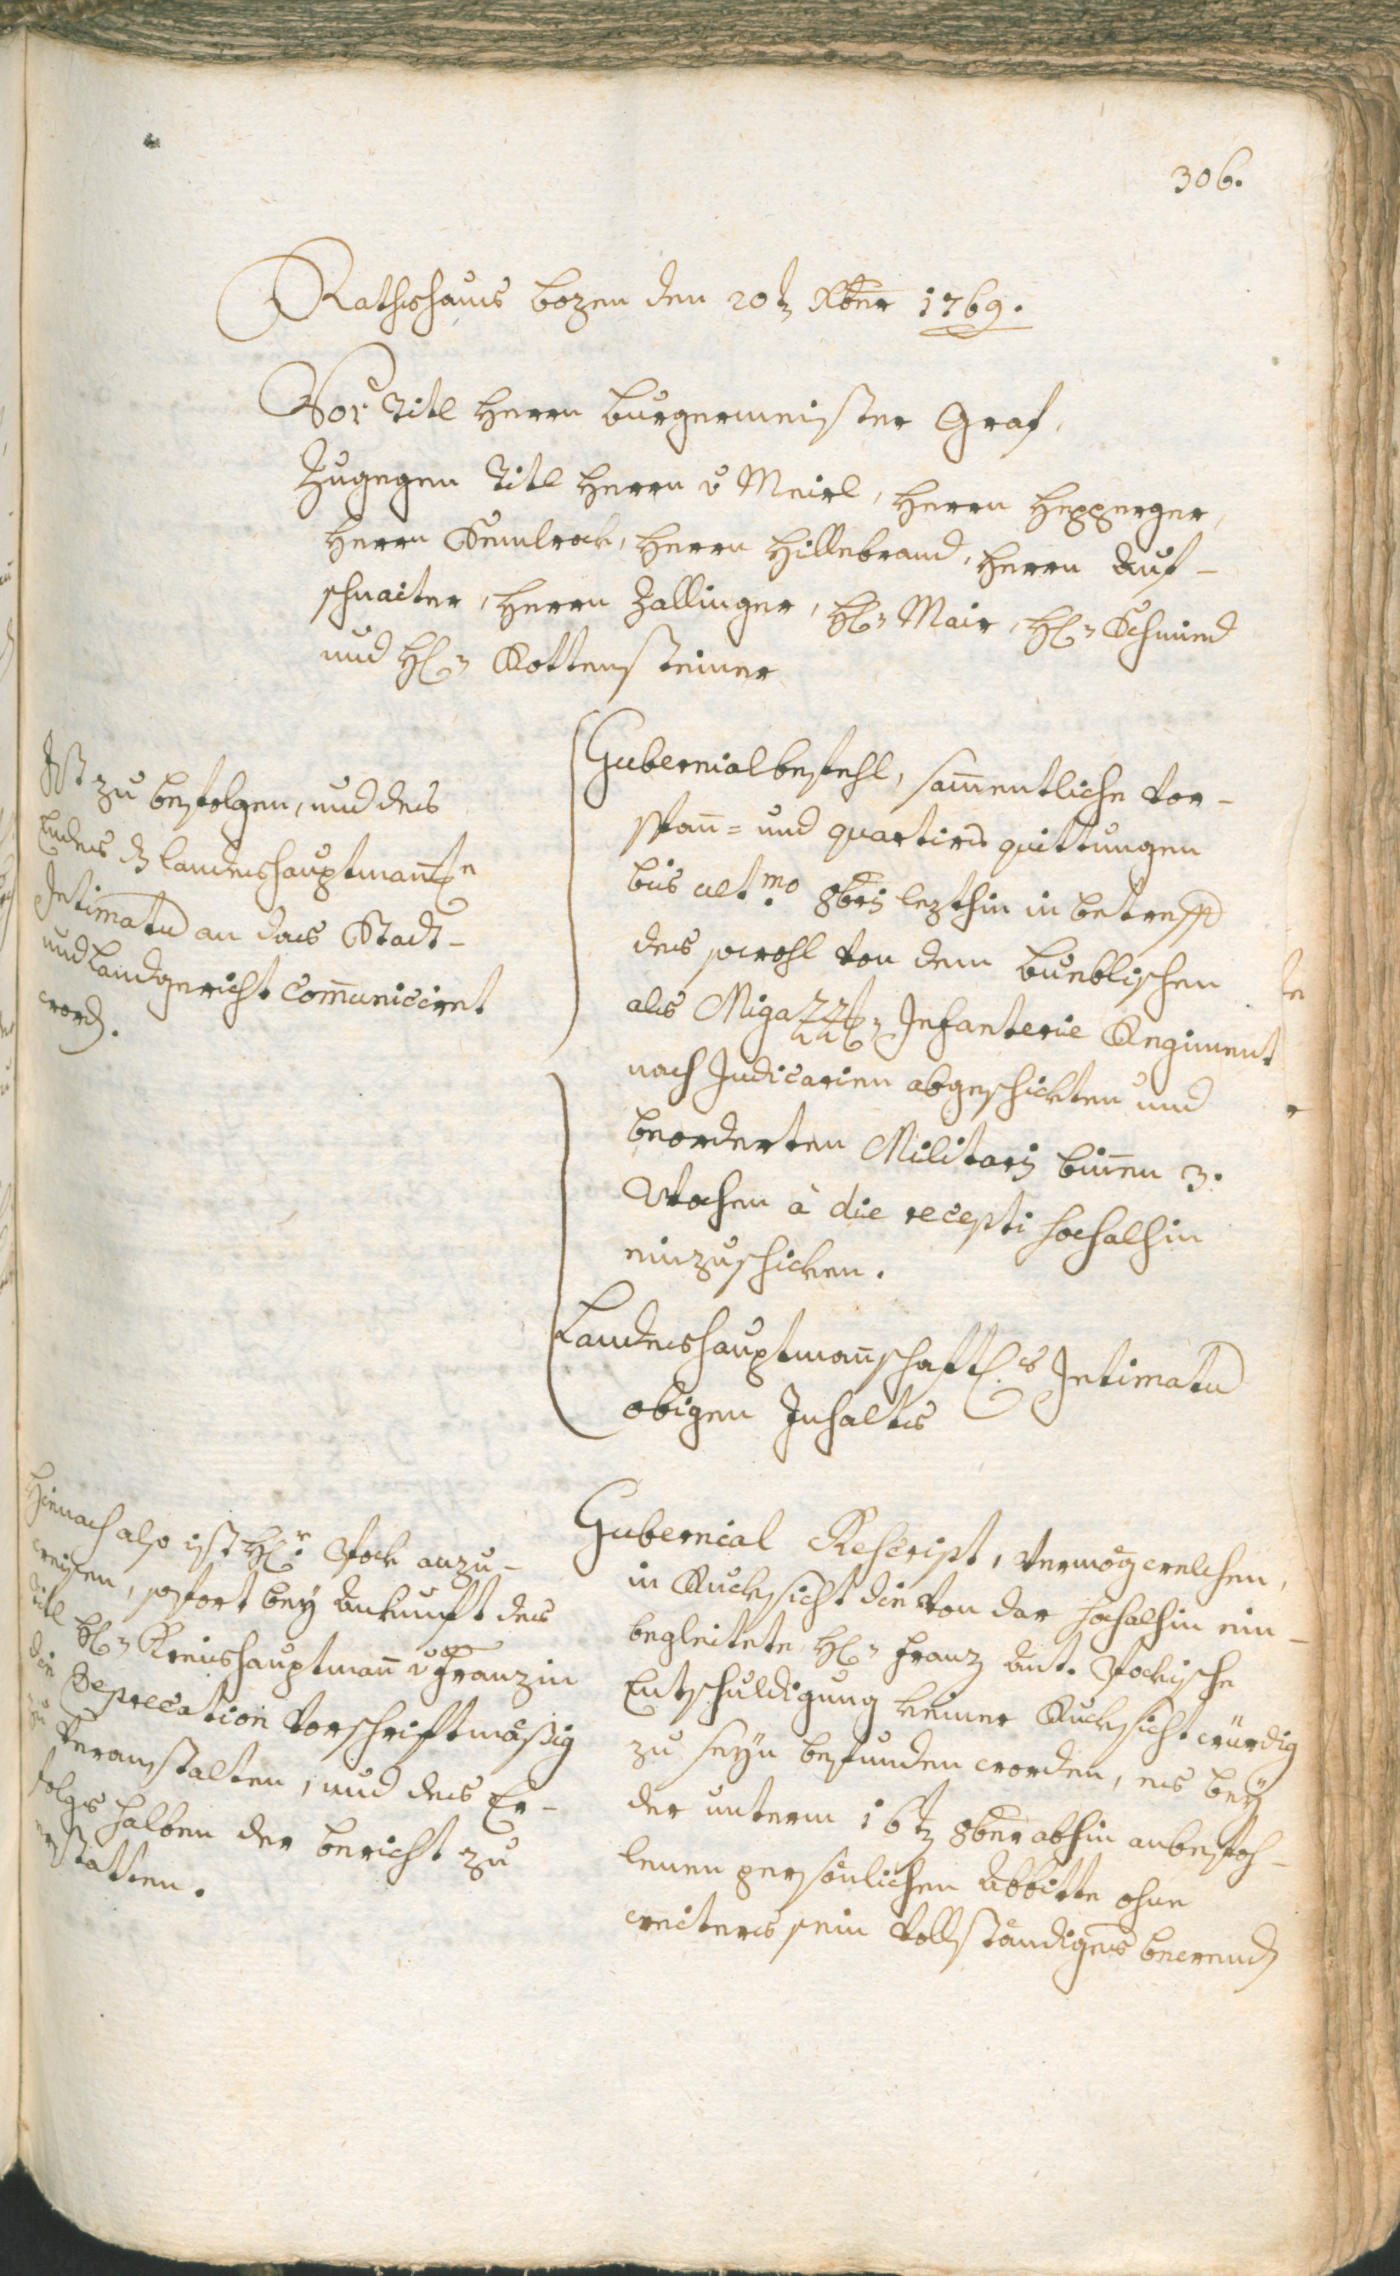 306.
Rathshaus Bozen den 20t Xber 1769.
Vor Titl Herrn Burgermeister Graf,
Zugegen Titl Herrn v Meirl, Herrn Hepperger,
Herrn Kemlrock, Herrn Hillebrand, Herrn Auf-
schnaiter, Herrn Zallinger, H. Mair, H. Schmid
und H. Rottensteiner
Ist zu befolgen, und des
Endes landeshauptmann
Intimatum an das Stadt-
und Landgericht com̄uniciret
word.
Gubernialbefehl, sam̄entliche Vor-
span̄= und quartirs quittungen
bis ult.mo 8bris lezthin in betreff
des sowohl von dem Bueblischen
als Migazzi Infanterie Regiment
nach Judicarien abgeschickten und
beorderten Militaris bin̄en 3.
Wochen à die recepti hochalhin
einzuschicken.
Landeshauptman̄schaftl.s Intimatum
obigen Inhalts
Hienach also ist H.r Stock anzu-
weisen, sofort bey Ankunft des
Titl H. Kreishauptman̄ v Franzin
die Deprecation vorschriftmäßig
zu veranstalten, und des Er-
folgs halben der bericht zu
erstatten.
Gubernial Rescript, vermög welchen,
in Rucksicht die von dar hochalhin ein-
begleitete H. Franz Ant. Stockische
Entschuldigung keiner Rucksicht würdig
zu seyn befunden worden, es bey
der unterm 16t 8ber abhin anbefoh-
lenen persönlichen Abbitte ohne
weiters sein vollständiges bewend